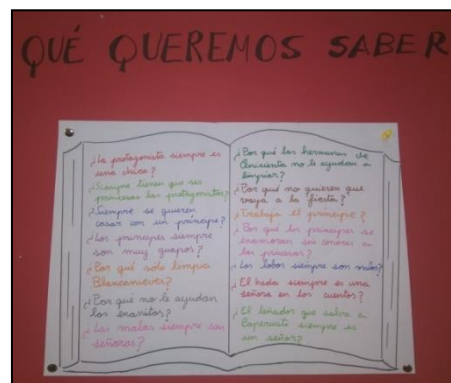 QUÉ QUEREMOS SABER
¿La protagonista siempre es
una chica?
¿Siempre tienen que ser
princesas las protagonistas?
¿Siempre se quieren
casar con un príncipe?
¿Los príncipes siempre
son muy guapos?
¿Por qué solo limpia
Blancanieves?
¿Por qué no le ayudan
los enanitos?
¿Las malas siempre son
señoras?
¿Por qué las hermanas de
Cenicienta no le ayudan a
limpiar?
¿Por qué no quieren que
vaya a la fiesta?
¿Trabaja el príncipe?
¿Por qué los príncipes se
enamoran sin conocer a
las princesas?
¿Los lobos siempre son malos?
¿El hada siempre es una
señora en los cuentos?
¿El leñador que salva a
Caperucita siempre es
un señor?